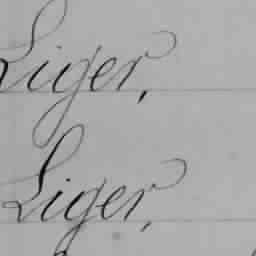 Liger,
Liger,